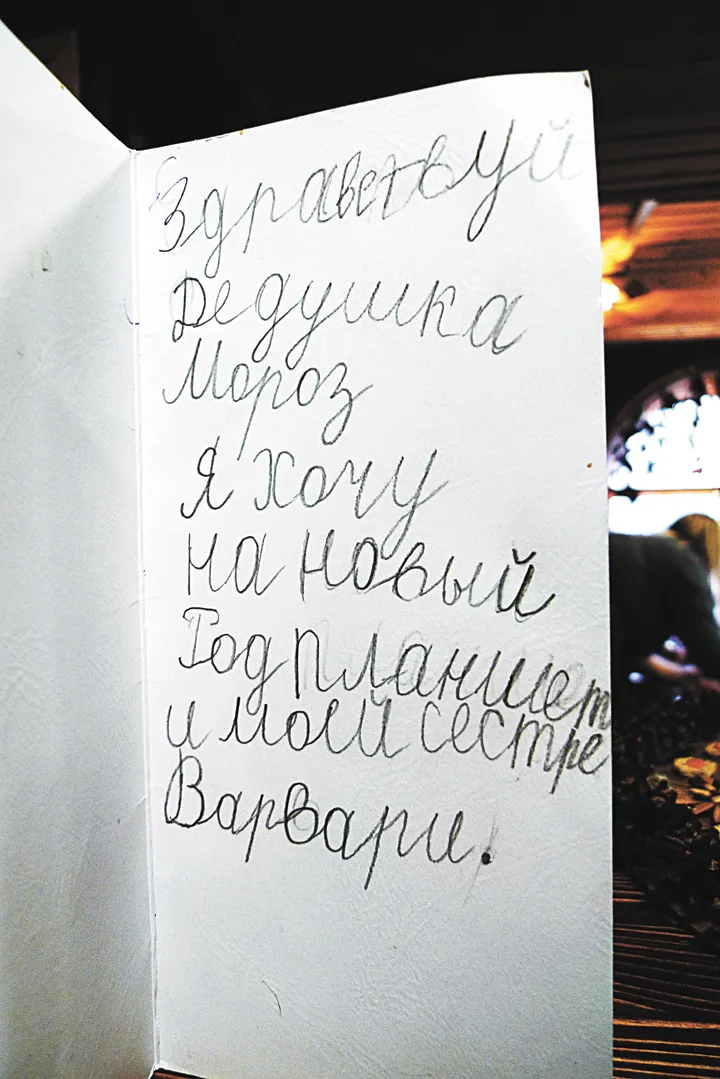 Здравствуй
Дедушка
Мороз
Я хочу
на новый
Год планшет
и моей сестре
Варвари.